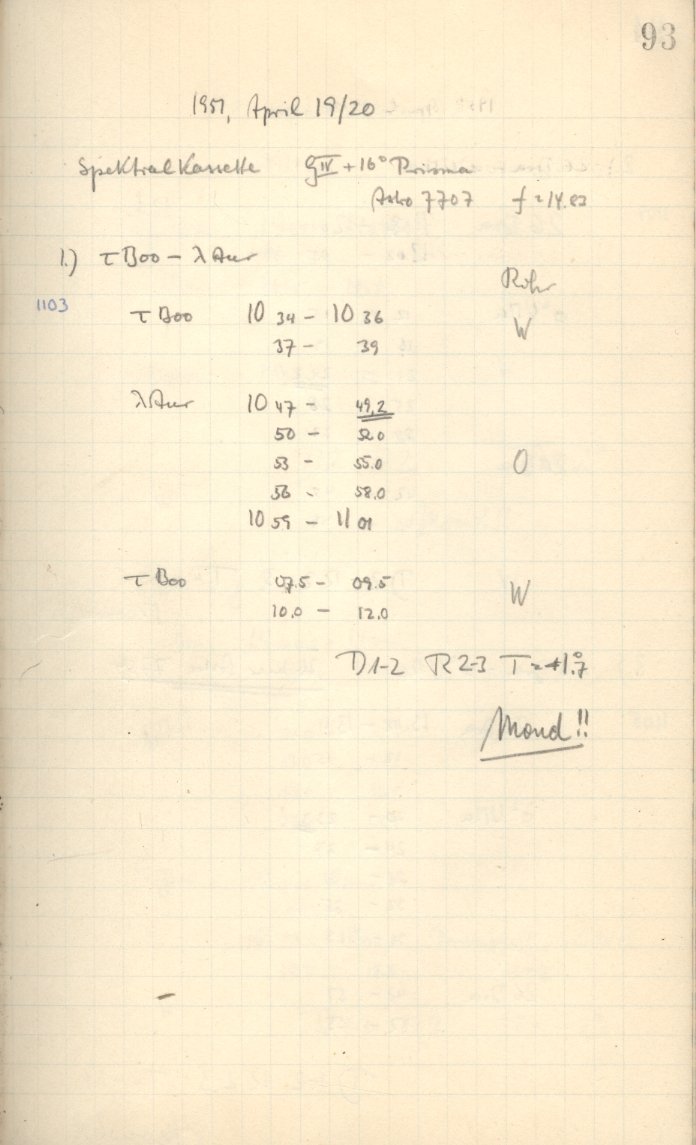 93
1951, April 19/20
Spektralkassette GIV + 16° Prisma
Astro 7707 f = 14.83
1.) τ Boo - λ Aur
Rohr
1103 τ Boo 10 34 - 10 36 W
37 - 39
λ Aur 10 47 - 49,2
50 - 52.0
53 - 55.0 O
56 - 58.0
10 59 - 11 01
τ Boo 07.5 - 09.5 W
10.0 - 12.0
D 1-2 R 2-3 T = +1°.7
Mond!!